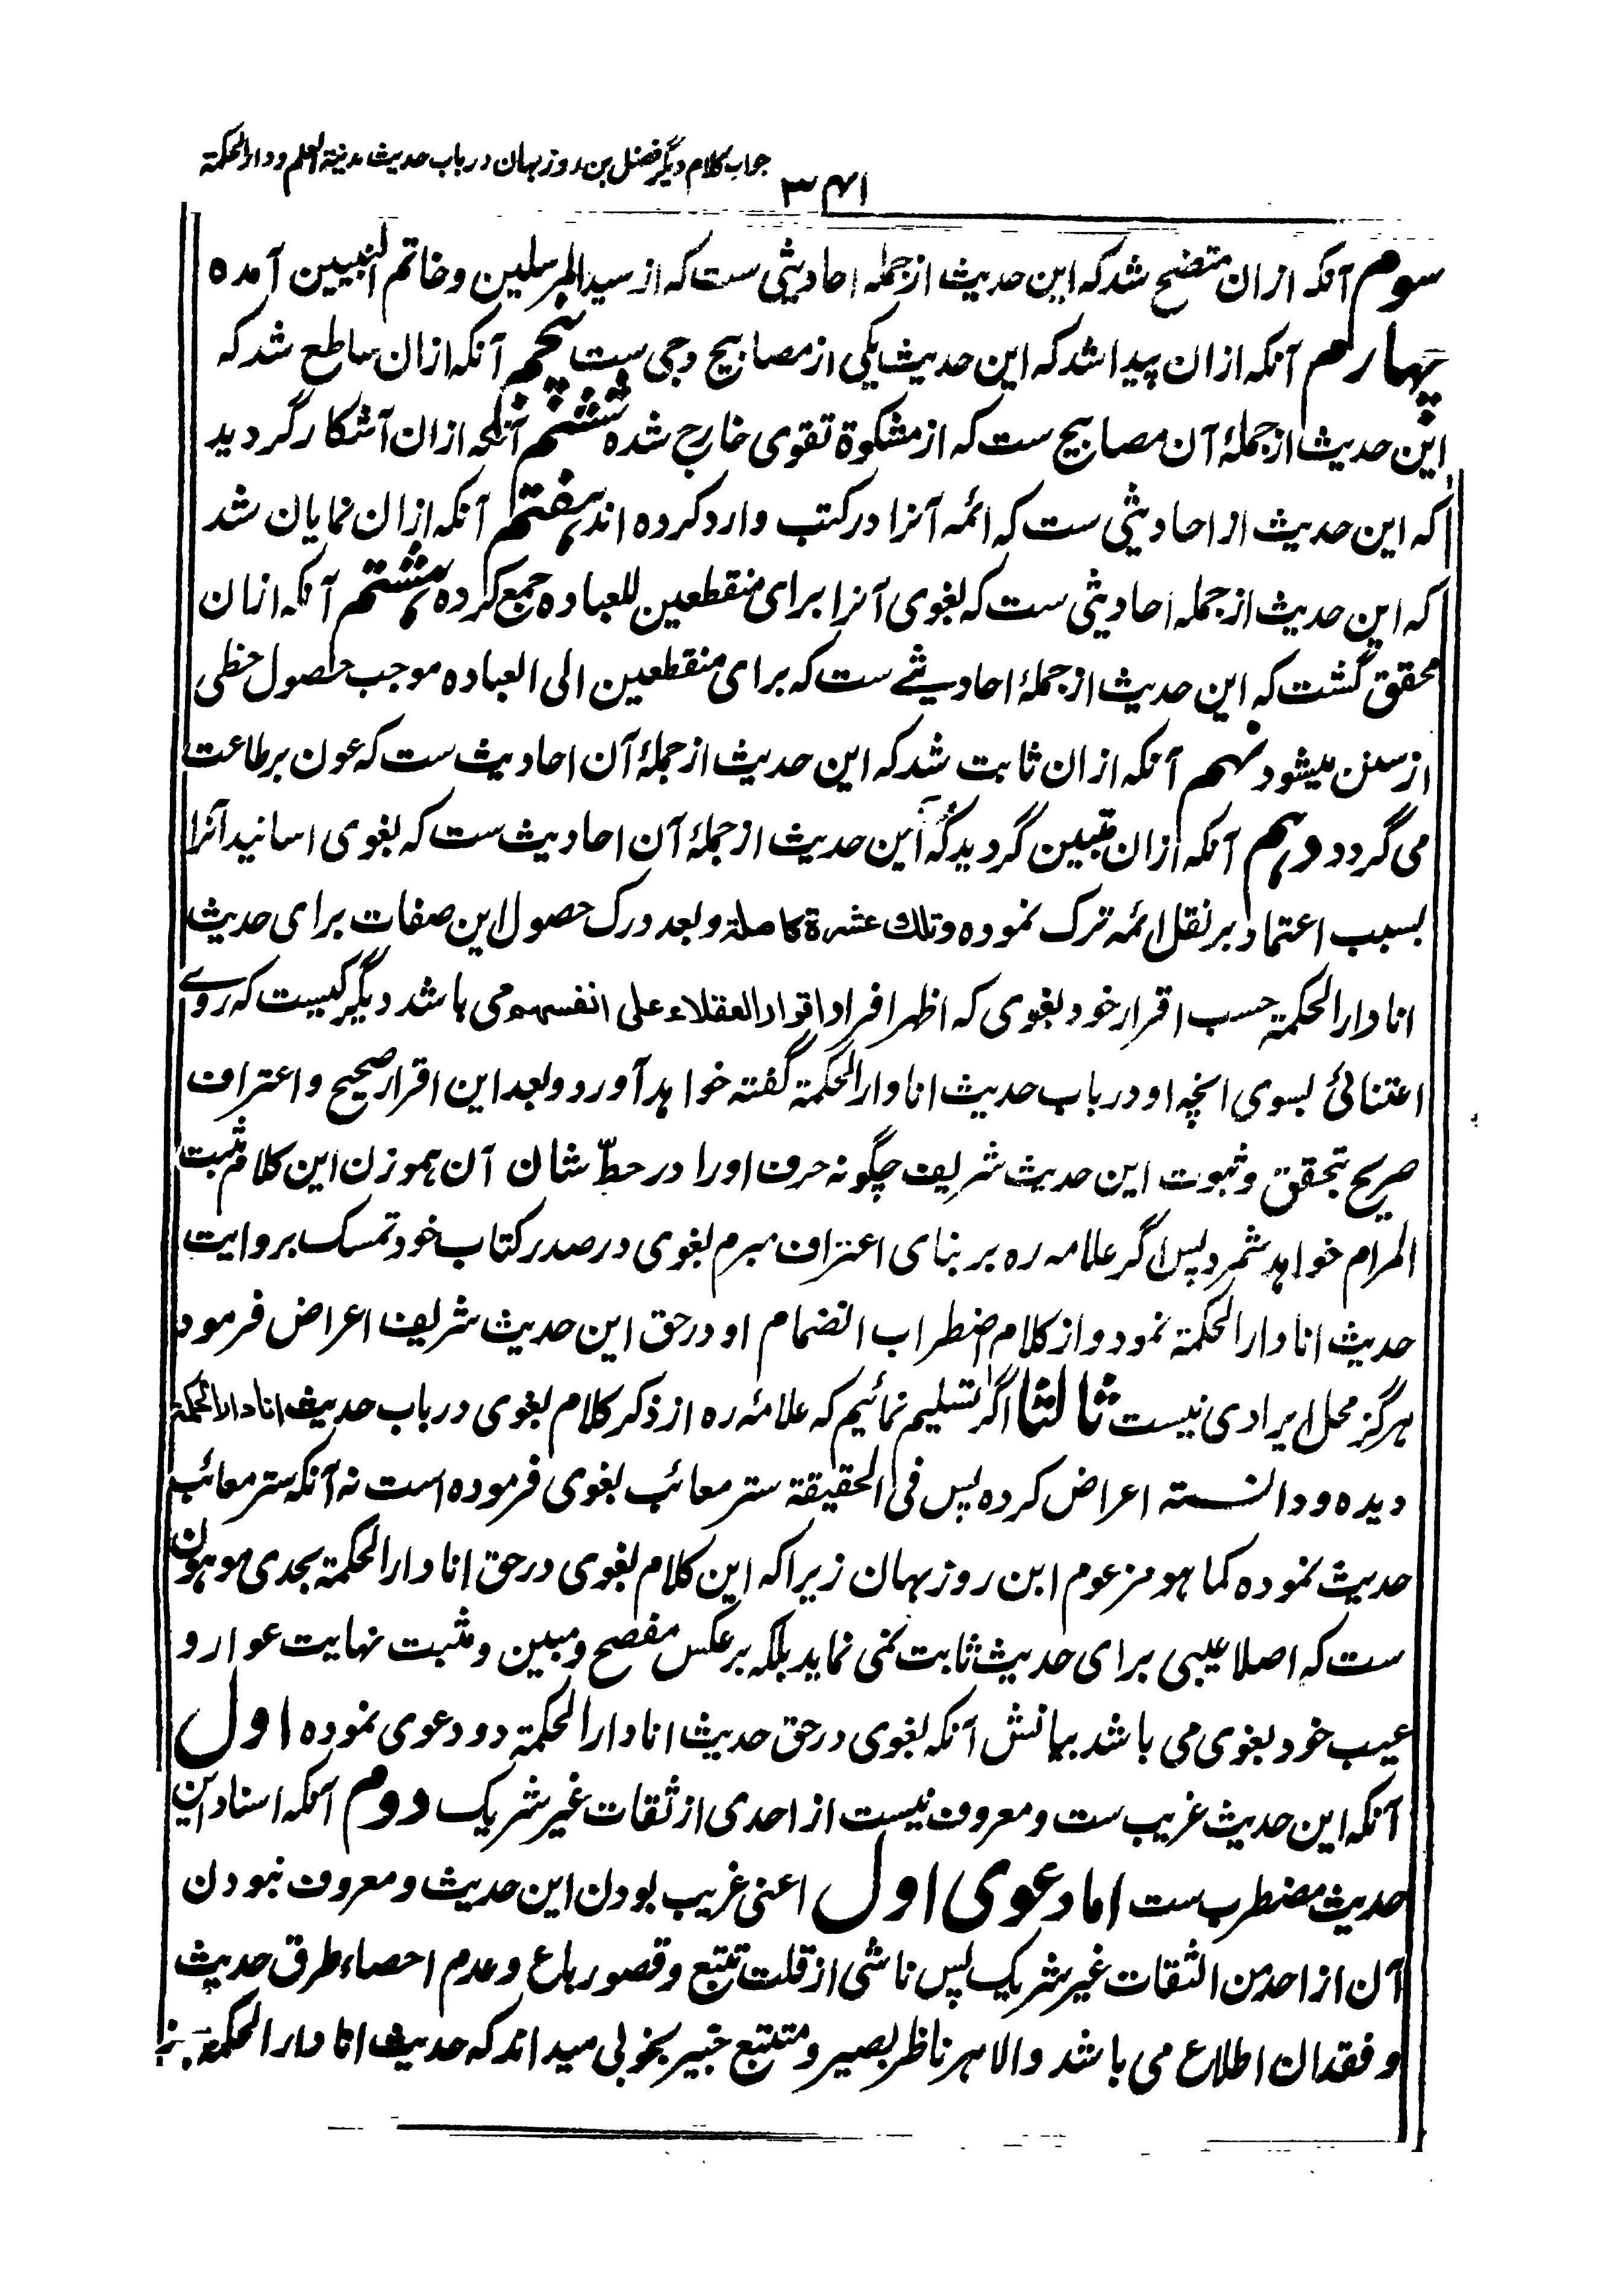 جواب کلام دیگر فضل بن روزبهان در باب حدیث مدینة العلم و دار الحکمة
۳۴۱
سوم آنکه ازان متضح شد که این حدیث از جمله احادیثی ست که از سید المرسلین و خاتم النبیین آمده
چهارم آنکه ازان پیدا شد که این حدیث یکی از مصابیح دجی ست پنجم آنکه ازان ساطع شد که
این حدیث از جملۀ آن مصابیح ست که از مشکوة تقوی خارج شده ششم آنکه ازان آشکار گردید
که این حدیث از احادیثی ست که ائمه آنرا در کتب وارد کرده اند هفتم آنکه ازان نمایان شد
که این حدیث از جمله احادیثی ست که بغوی آنرا برای منقطعین للعباده جمع کرده هشتم آنکه ازان
محقق گشت که این حدیث از جملۀ احادیثے ست که برای منقطعین الی العباده موجب حصول حظی
از سنن میشود نهم آنکه ازان ثابت شد که این حدیث از جملۀ آن احادیث ست که عون بر طاعت
می گردد دهم آنکه ازان متبین گردید که این حدیث از جملۀ آن احادیث ست که بغوی اسانید آنرا
بسبب اعتماد بر نقل ائمه ترک نموده وتلك عشرة كاملة و بعد درک حصول این صفات برای حدیث
انا دار الحکمة حسب اقرار خود بغوی که اظهر افراد اقرار العقلاء على انفسهم می باشد دیگر کیست که روے
اعتنائی بسوی انچه او در باب حدیث انا دار الحکمة گفته خواهد آورد و بعد این اقرار صحیح و اعتراف
صریح بتحقق و ثبوت این حدیث شریف چگونه حرف او را در حطّ شان آن هموزن این کلام مثبت
المرام خواهد شمرد پس اگر علامه ره بر بنای اعتراف مبرم بغوی در صدر کتاب خود تمسک بروایت
حدیث انا دار الحکمة نمود و از کلام اضطراب انضمام او در حق این حدیث شریف اعراض فرمود
هرگز محل ایرادی نیست ثالثا اگر تسلیم نمائیم که علامه ره از ذکر کلام بغوی در باب حدیث انا دار الحکمة
دیده و دانسته اعراض کرده پس فی الحقیقة ستر معائب بغوی فرموده است نه آنکه ستر معائب
حدیث نموده کما هو مزعوم ابن روزبهان زیرا که این کلام بغوی در حق انا دار الحکمة بحدی موهون
ست که اصلا عیبی برای حدیث ثابت نمی نماید بلکه بر عکس مفصح و مبین و مثبت نهایت عوار و
عیب خود بغوی می باشد بیانش آنکه بغوی در حق حدیث انا دار الحکمة دو دعوی نموده اول
آنکه این حدیث غریب ست و معروف نیست از احدی از ثقات غیر شریک دوم آنکه اسناد این
حدیث مضطرب ست اما دعوی اول اعنی غریب بودن این حدیث و معروف نبودن
آن از احد من الثقات غیر شریک پس ناشی از قلت تتبع و قصور باع و عدم احصاء طرق حدیث
و فقدان اطلاع می باشد والا هر ناظر بصیر و متتبع خبیر بخوبی میداند که حدیث انا دار الحکمة